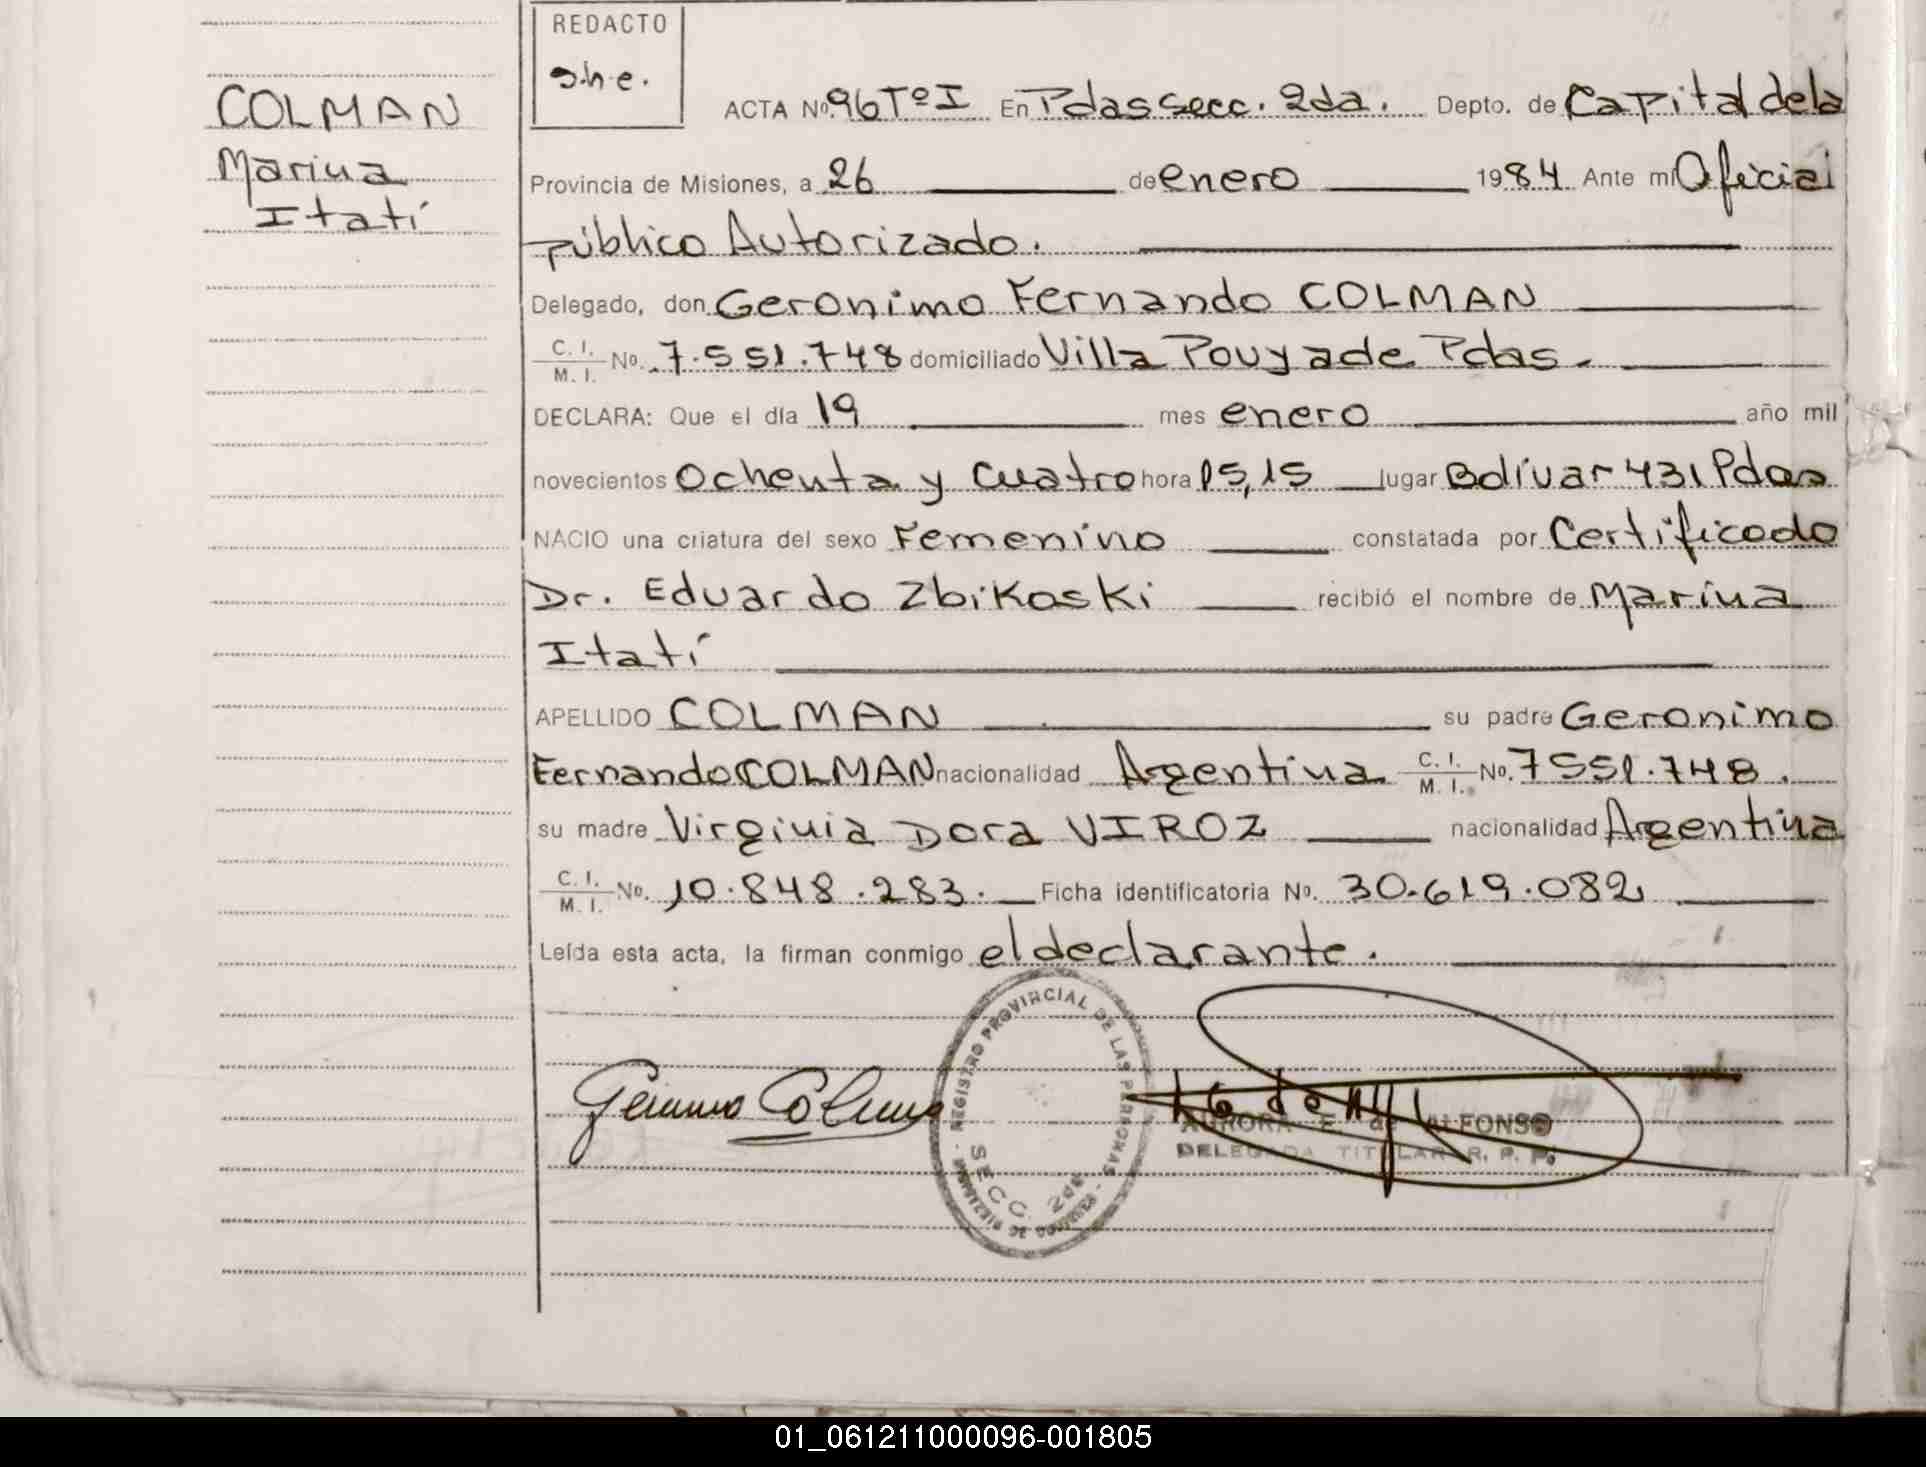 REDACTO
s.h.e.
COLMAN
Marina
Itatí
ACTA Nº 96 Tº I En Pdas secc. 2da. Depto. de Capital de la
Provincia de Misiones, a 26 de enero 1984 Ante mí Oficial
público Autorizado.
Delegado, don Geronimo Fernando COLMAN
C. I. / M. I. Nº. 7.551.748 domiciliado Villa Pouyade Pdas.
DECLARA: Que el día 19 mes enero año mil
novecientos Ochenta y Cuatro hora 15,15 lugar Bolívar 431 Pdas
NACIO una criatura del sexo Femenino constatada por Certificado
Dr. Eduardo Zbikoski recibió el nombre de Marina
Itatí
APELLIDO COLMAN su padre Geronimo
Fernando COLMAN nacionalidad Argentina C. I. / M. I. Nº. 7551.748.
su madre Virginia Dora VIROZ nacionalidad Argentina
C. I. / M. I. Nº. 10.848.283. Ficha identificatoria Nº. 30.619.082
Leída esta acta, la firman conmigo el declarante.
REGISTRO PROVINCIAL DE LAS PERSONAS
SECC. 2da
AURORA E. de ALFONSO
DELEGADA TITULAR R. P. P.
01_061211000096-001805